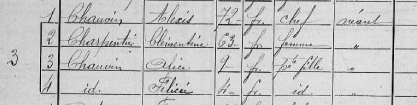 1 Chauvin Alexis 72 fr chef néant
2 Charpentier Clémentine 63 fr femme "
3 3 Chauvin Alice 9 fr pte fille "
4 id. Félicie 4 fr id. "